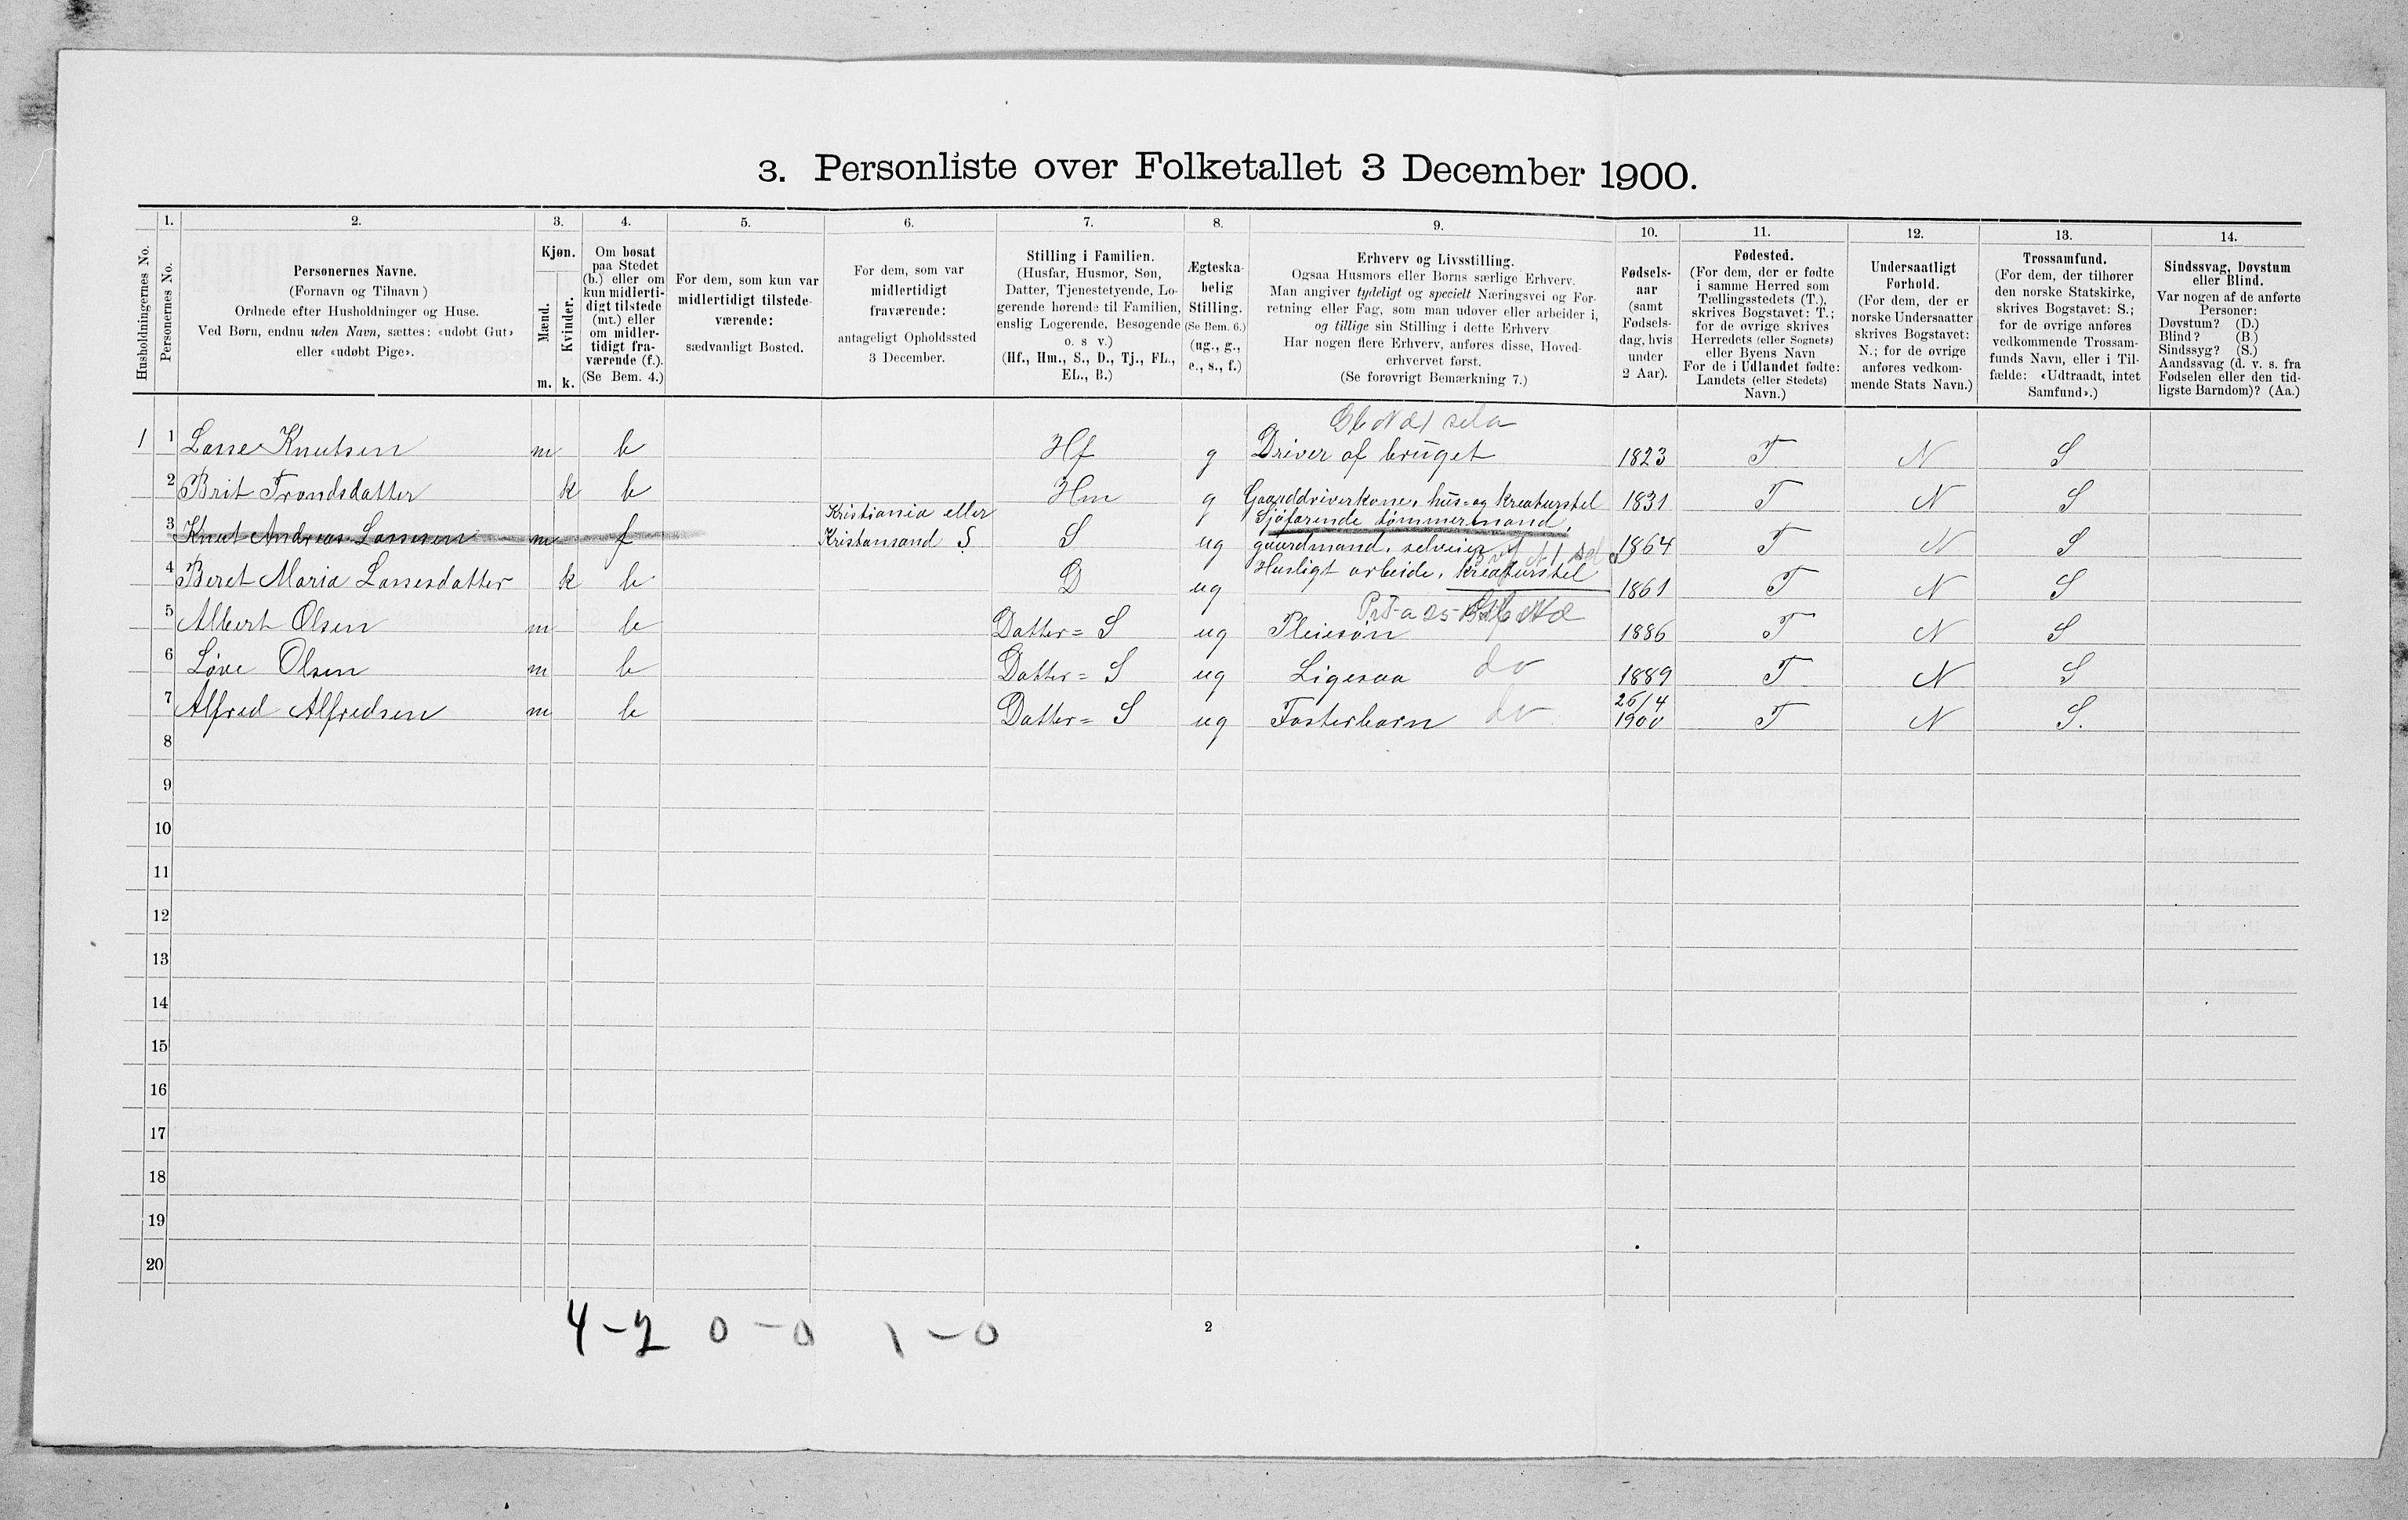 3. Personliste over Folketallet 3 December 1900.
Husholdningernes No.
1.
Personernes No.
2.
Personernes Navne.
(Fornavn og Tilnavn)
Ordnede efter Husholdninger og Huse.
Ved Børn, endnu uden Navn, sættes: «udøbt Gut»
eller «udøbt Pige».
3.
Kjøn.
Mænd.
Kvinder.
m. k.
4.
Om bosat
paa Stedet
(b.) eller om
kun midlerti-
digt tilstede
(mt.) eller
om midler-
tidigt fra-
værende (f.).
(Se Bem. 4.)
5.
For dem, som kun var
midlertidigt tilstede-
værende:
sædvanligt Bosted.
6.
For dem, som var
midlertidigt
fraværende:
antageligt Opholdssted
3 December.
7.
Stilling i Familien.
(Husfar, Husmor, Søn,
Datter, Tjenestetyende, Lo-
gerende hørende til Familien,
enslig Logerende, Besøgende
o. s v.)
(Hf., Hm., S., D., Tj., FL.,
EL., B.)
8.
Ægteska-
belig
Stilling.
(Se Bem. 6.)
(ug., g.,
e., s., f.)
9.
Erhverv og Livsstilling.
Ogsaa Husmors eller Børns særlige Erhverv.
Man angiver tydeligt og specielt Næringsvei og For-
retning eller Fag, som man udøver eller arbeider i,
og tillige sin Stilling i dette Erhverv
Har nogen flere Erhverv, anføres disse, Hoved-
erhvervet først.
(Se forøvrigt Bemærkning 7.)
10.
Fødsels-
aar
(samt
Fødsels-
dag, hvis
under
2 Aar).
11.
Fødested.
(For dem, der er fødte
i samme Herred som
Tællingsstedets (T.),
skrives Bogstavet: T.;
for de øvrige skrives
Herredets (eller Sognets)
eller Byens Navn
For de i Udlandet fødte:
Landets (eller Stedets)
Navn.)
12.
Undersaatligt
Forhold.
(For dem, der er
norske Undersaatter
skrives Bogstavet:
N.; for de øvrige
anføres vedkom-
mende Stats Navn.)
13.
Trossamfund.
(For dem, der tilhører
den norske Statskirke,
skrives Bogstavet: S.;
for de øvrige anføres
vedkommende Trossam-
funds Navn, eller i Til-
fælde: «Udtraadt, intet
Samfund».)
14.
Sindssvag, Døvstum
eller Blind.
Var nogen af de anførte
Personer:
Døvstum? (D.)
Blind? (B.)
Sindssyg? (S.)
Aandssvag (d. v. s. fra
Fødselen eller den tid-
ligste Barndom)? (Aa.)
1 1 Lasse Knutsen m b Hf g Driver af bruget 1823 T N S
2 Brit Trondsdatter k b Hm g Gaarddriverkone, hus- og kreaturstel 1831 T N S
3 Knut Andreas Lassesen m f Kristiania eller Kristansand S S ug Sjøfarende tømmermand, gaardmand, selveier 1864 T N S
4 Beret Maria Lassesdatter k b D ug Husligt arbeide, kreaturstel 1861 T N S
5 Albert Olsen m b Datter= S ug Pleiesøn 1886 T N S
6 Løve Olsen m b Datter= S ug Ligesaa do 1889 T N S
7 Alfred Alfredsen m b Datter= S ug Fosterbarn do 26/4 1900 T N S.
8
9
10
11
12
13
14
15
16
17
18
19
20
4-2 0-0 1-0
2